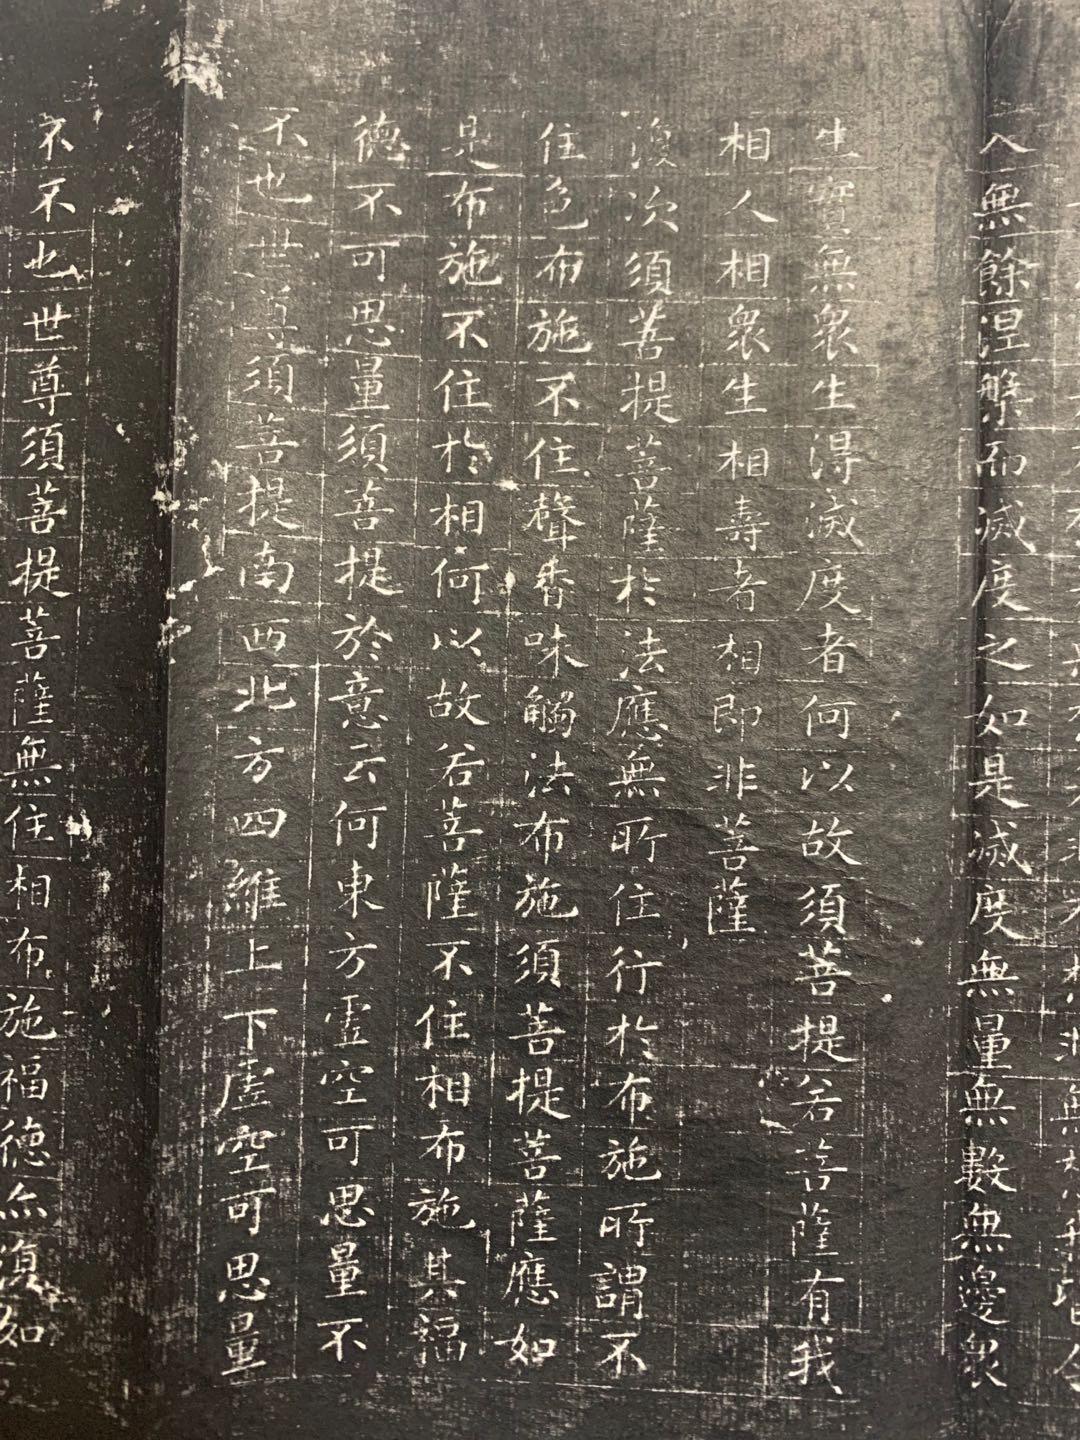 非無想我皆令
入無餘涅槃而滅度之如是滅度無量無數無邊眾
生實無眾生得滅度者何以故須菩提若菩薩有我
相人相眾生相壽者相即非菩薩
復次須菩提菩薩於法應無所住行於布施所謂不
住色布施不住聲香味觸法布施須菩提菩薩應如
是布施不住於相何以故若菩薩不住相布施其福
德不可思量須菩提於意云何東方虛空可思量不
不也世尊須菩提南西北方四維上下虛空可思量
不不也世尊須菩提菩薩無住相布施福德亦復如